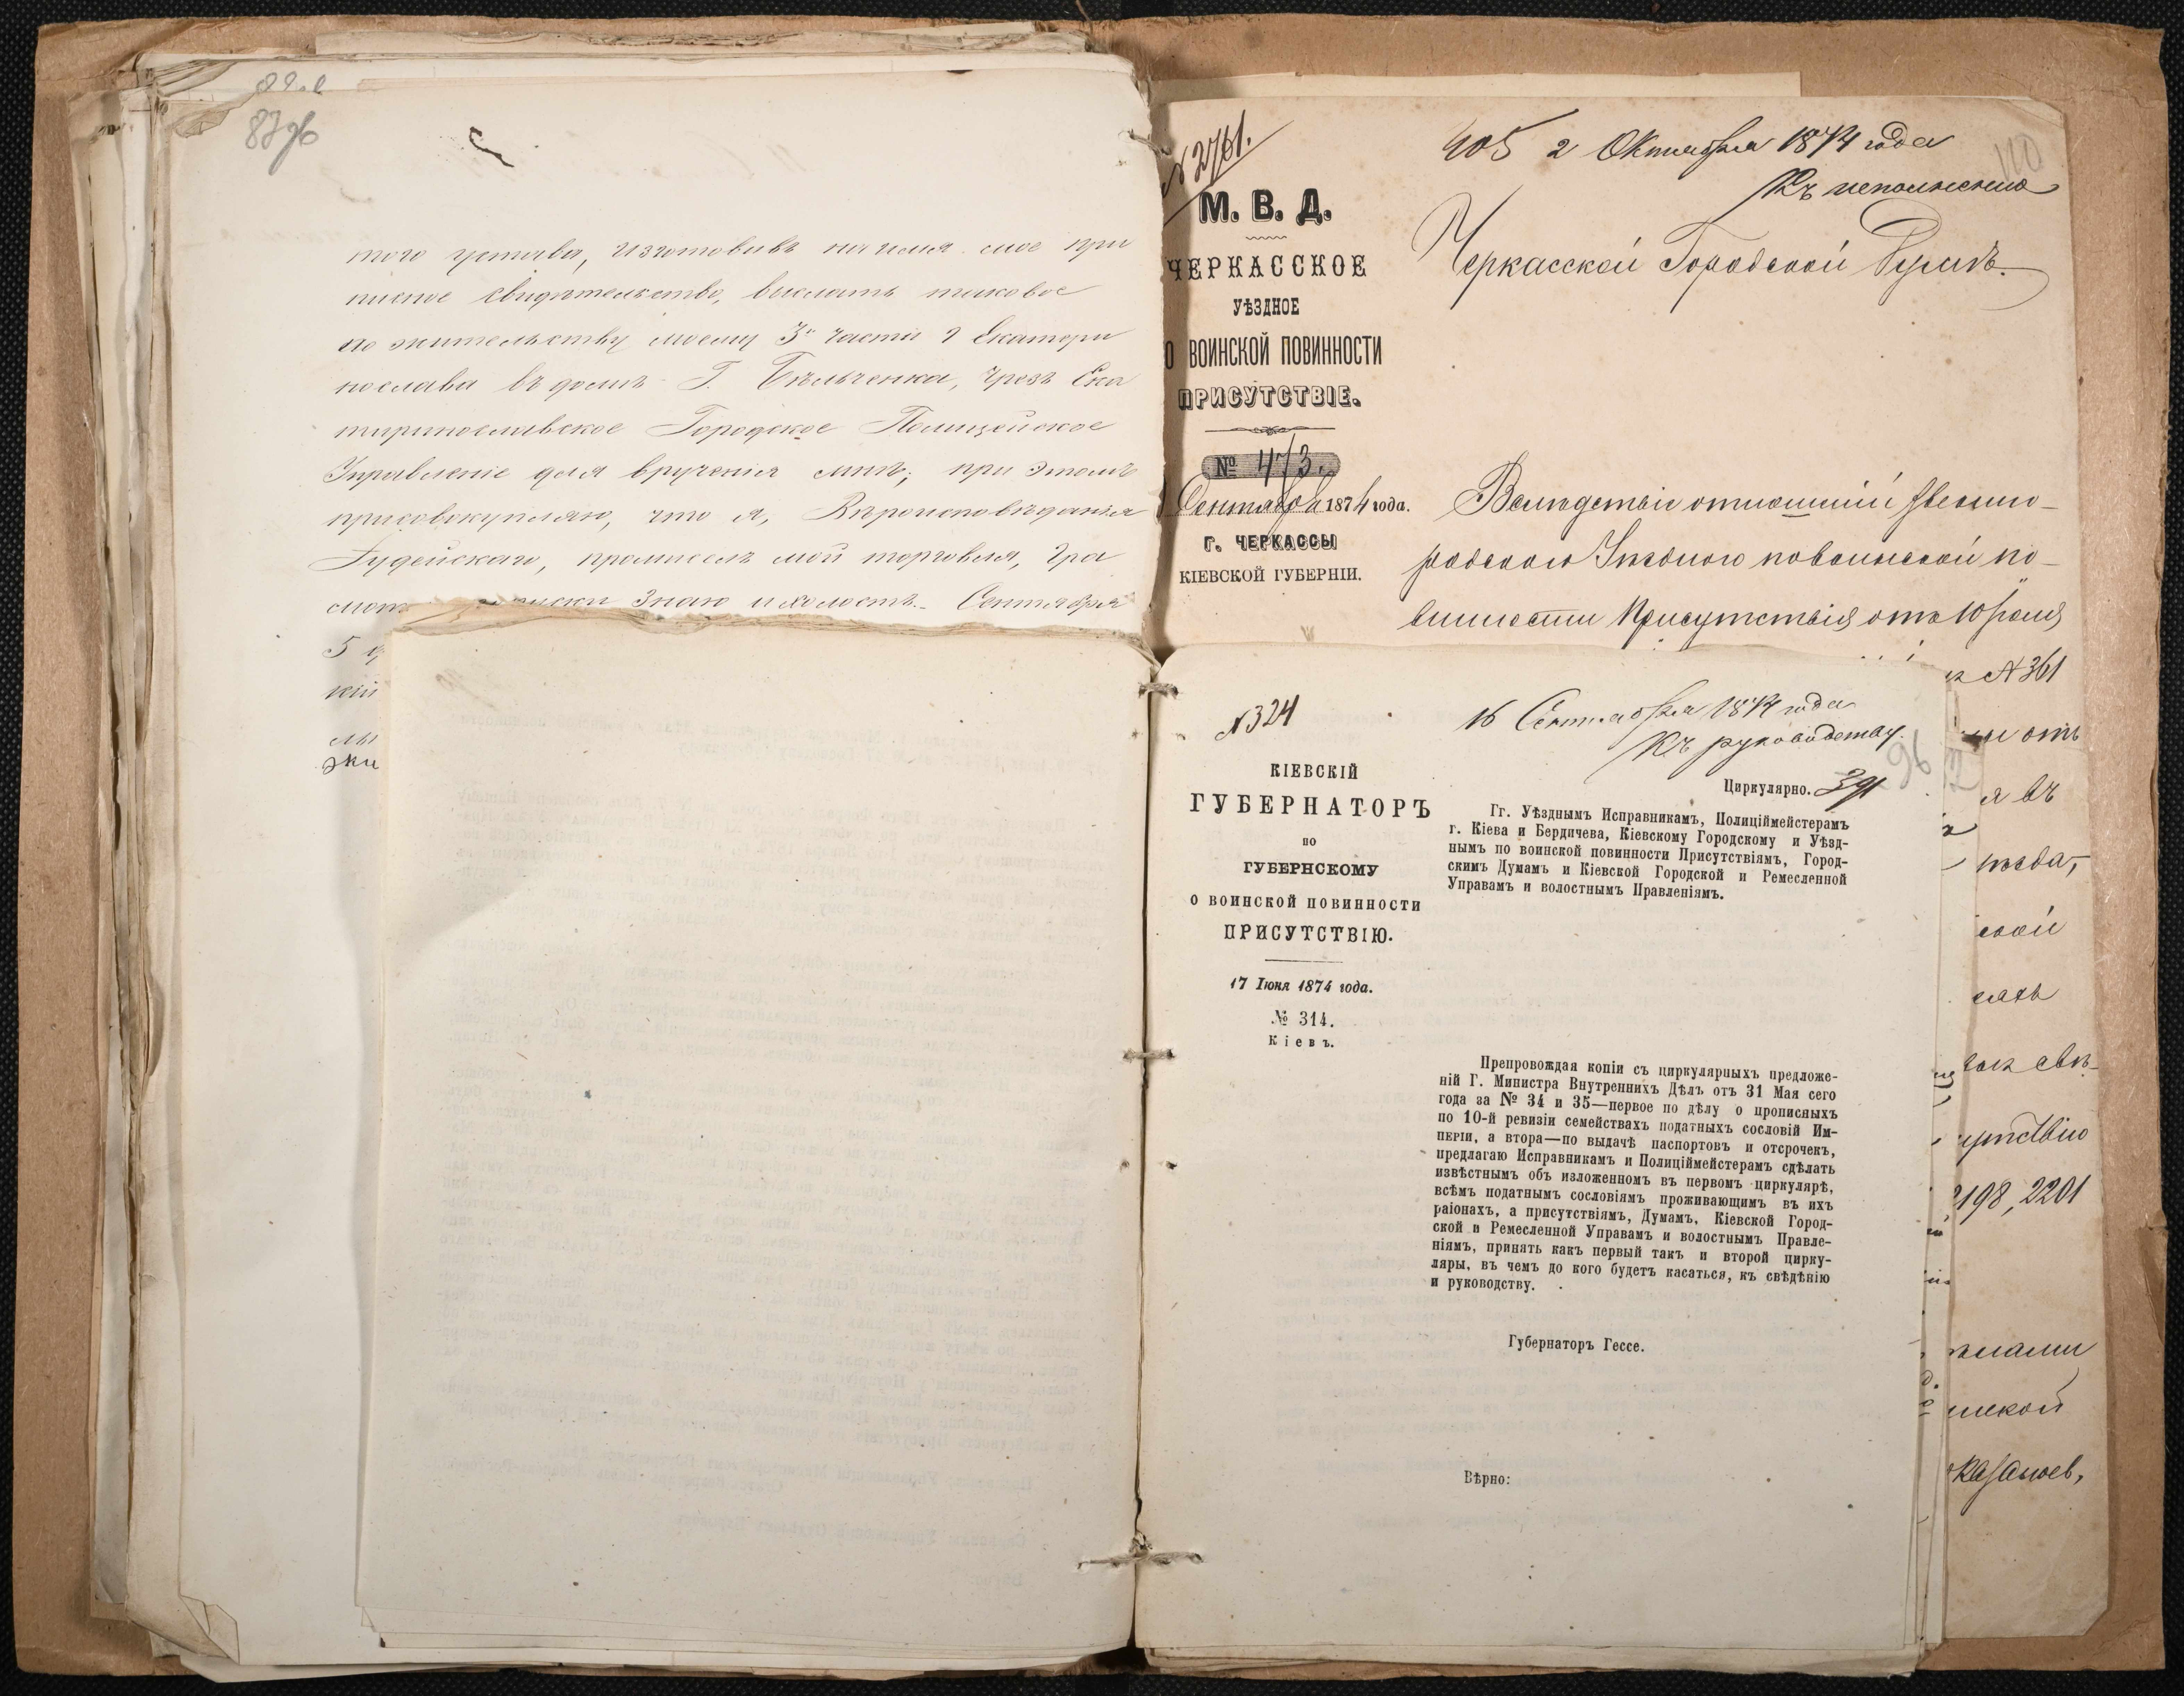 87об
того устава, изготовивъ на имя мое при
писное свидѣтельство, выслать таковое
по жительству моему 3й части г Екатери
нослава въ домъ Г. Бѣльченка, чрезъ Ека
тиринославское Городское Полицейское
Управленіе для врученія мнѣ; при этомъ
присовокупляю, что я, Вѣроисповѣданія
Іудейскаго, промыселъ мой торговля, гра
Знаю и холостъ. Сентября
5
кій
N 2761.
М. В. Д.
ЧЕРКАССКОЕ
УѢЗДНОЕ
О ВОИНСКОЙ ПОВИННОСТИ
ПРИСУТСТВІЕ.
№ 473.
Сентября 1874 года.
Г. ЧЕРКАССЫ
КІЕВСКОЙ ГУБЕРНІИ.
110
405 2 Октября 1874 года
Къ исполненію
Черкасской Городской Думѣ.
Вслѣдствіе отношеній Звенино-
родскаго Уѣзднаго по воинской по-
винности Присутствія отъ 10 Іюля
N 361
отъ
я въ
ской
утствію
2198, 2201
N 324
16 Сентября 1874 года
Къ руководству.
96
КІЕВСКІЙ
ГУБЕРНАТОРЪ
ПО
ГУБЕРНСКОМУ
О ВОИНСКОЙ ПОВИННОСТИ
ПРИСУТСТВІЮ.
17 Іюня 1874 года.
№ 314.
Кіевъ.
Циркулярно. 391
Гг. Уѣзднымъ Исправникамъ, Полиціймейстерамъ
г. Кіева и Бердичева, Кіевскому Городскому и Уѣзд-
нымъ по воинской повинности Присутствіямъ, Город-
скимъ Думамъ и Кіевской Городской и Ремесленной
Управамъ и волостнымъ Правленіямъ.
Препровождая копіи съ циркулярныхъ предложе-
ній Г. Министра Внутреннихъ Дѣлъ отъ 31 Мая сего
года за № 34 и 35—первое по дѣлу о прописныхъ
по 10-й ревизіи семействахъ податныхъ сословій Им-
періи, а втора—по выдачѣ паспортовъ и отсрочекъ,
предлагаю Исправникамъ и Полиціймейстерамъ сдѣлать
извѣстнымъ объ изложенномъ въ первомъ циркулярѣ,
всѣмъ податнымъ сословіямъ проживающимъ въ ихъ
раіонахъ, а присутствіямъ, Думамъ, Кіевской Город-
ской и Ремесленной Управамъ и волостнымъ Правле-
ніямъ, принять какъ первый такъ и второй цирку-
ляры, въ чемъ до кого будетъ касаться, къ свѣдѣнію
и руководству.
Губернаторъ Гессе.
Вѣрно: